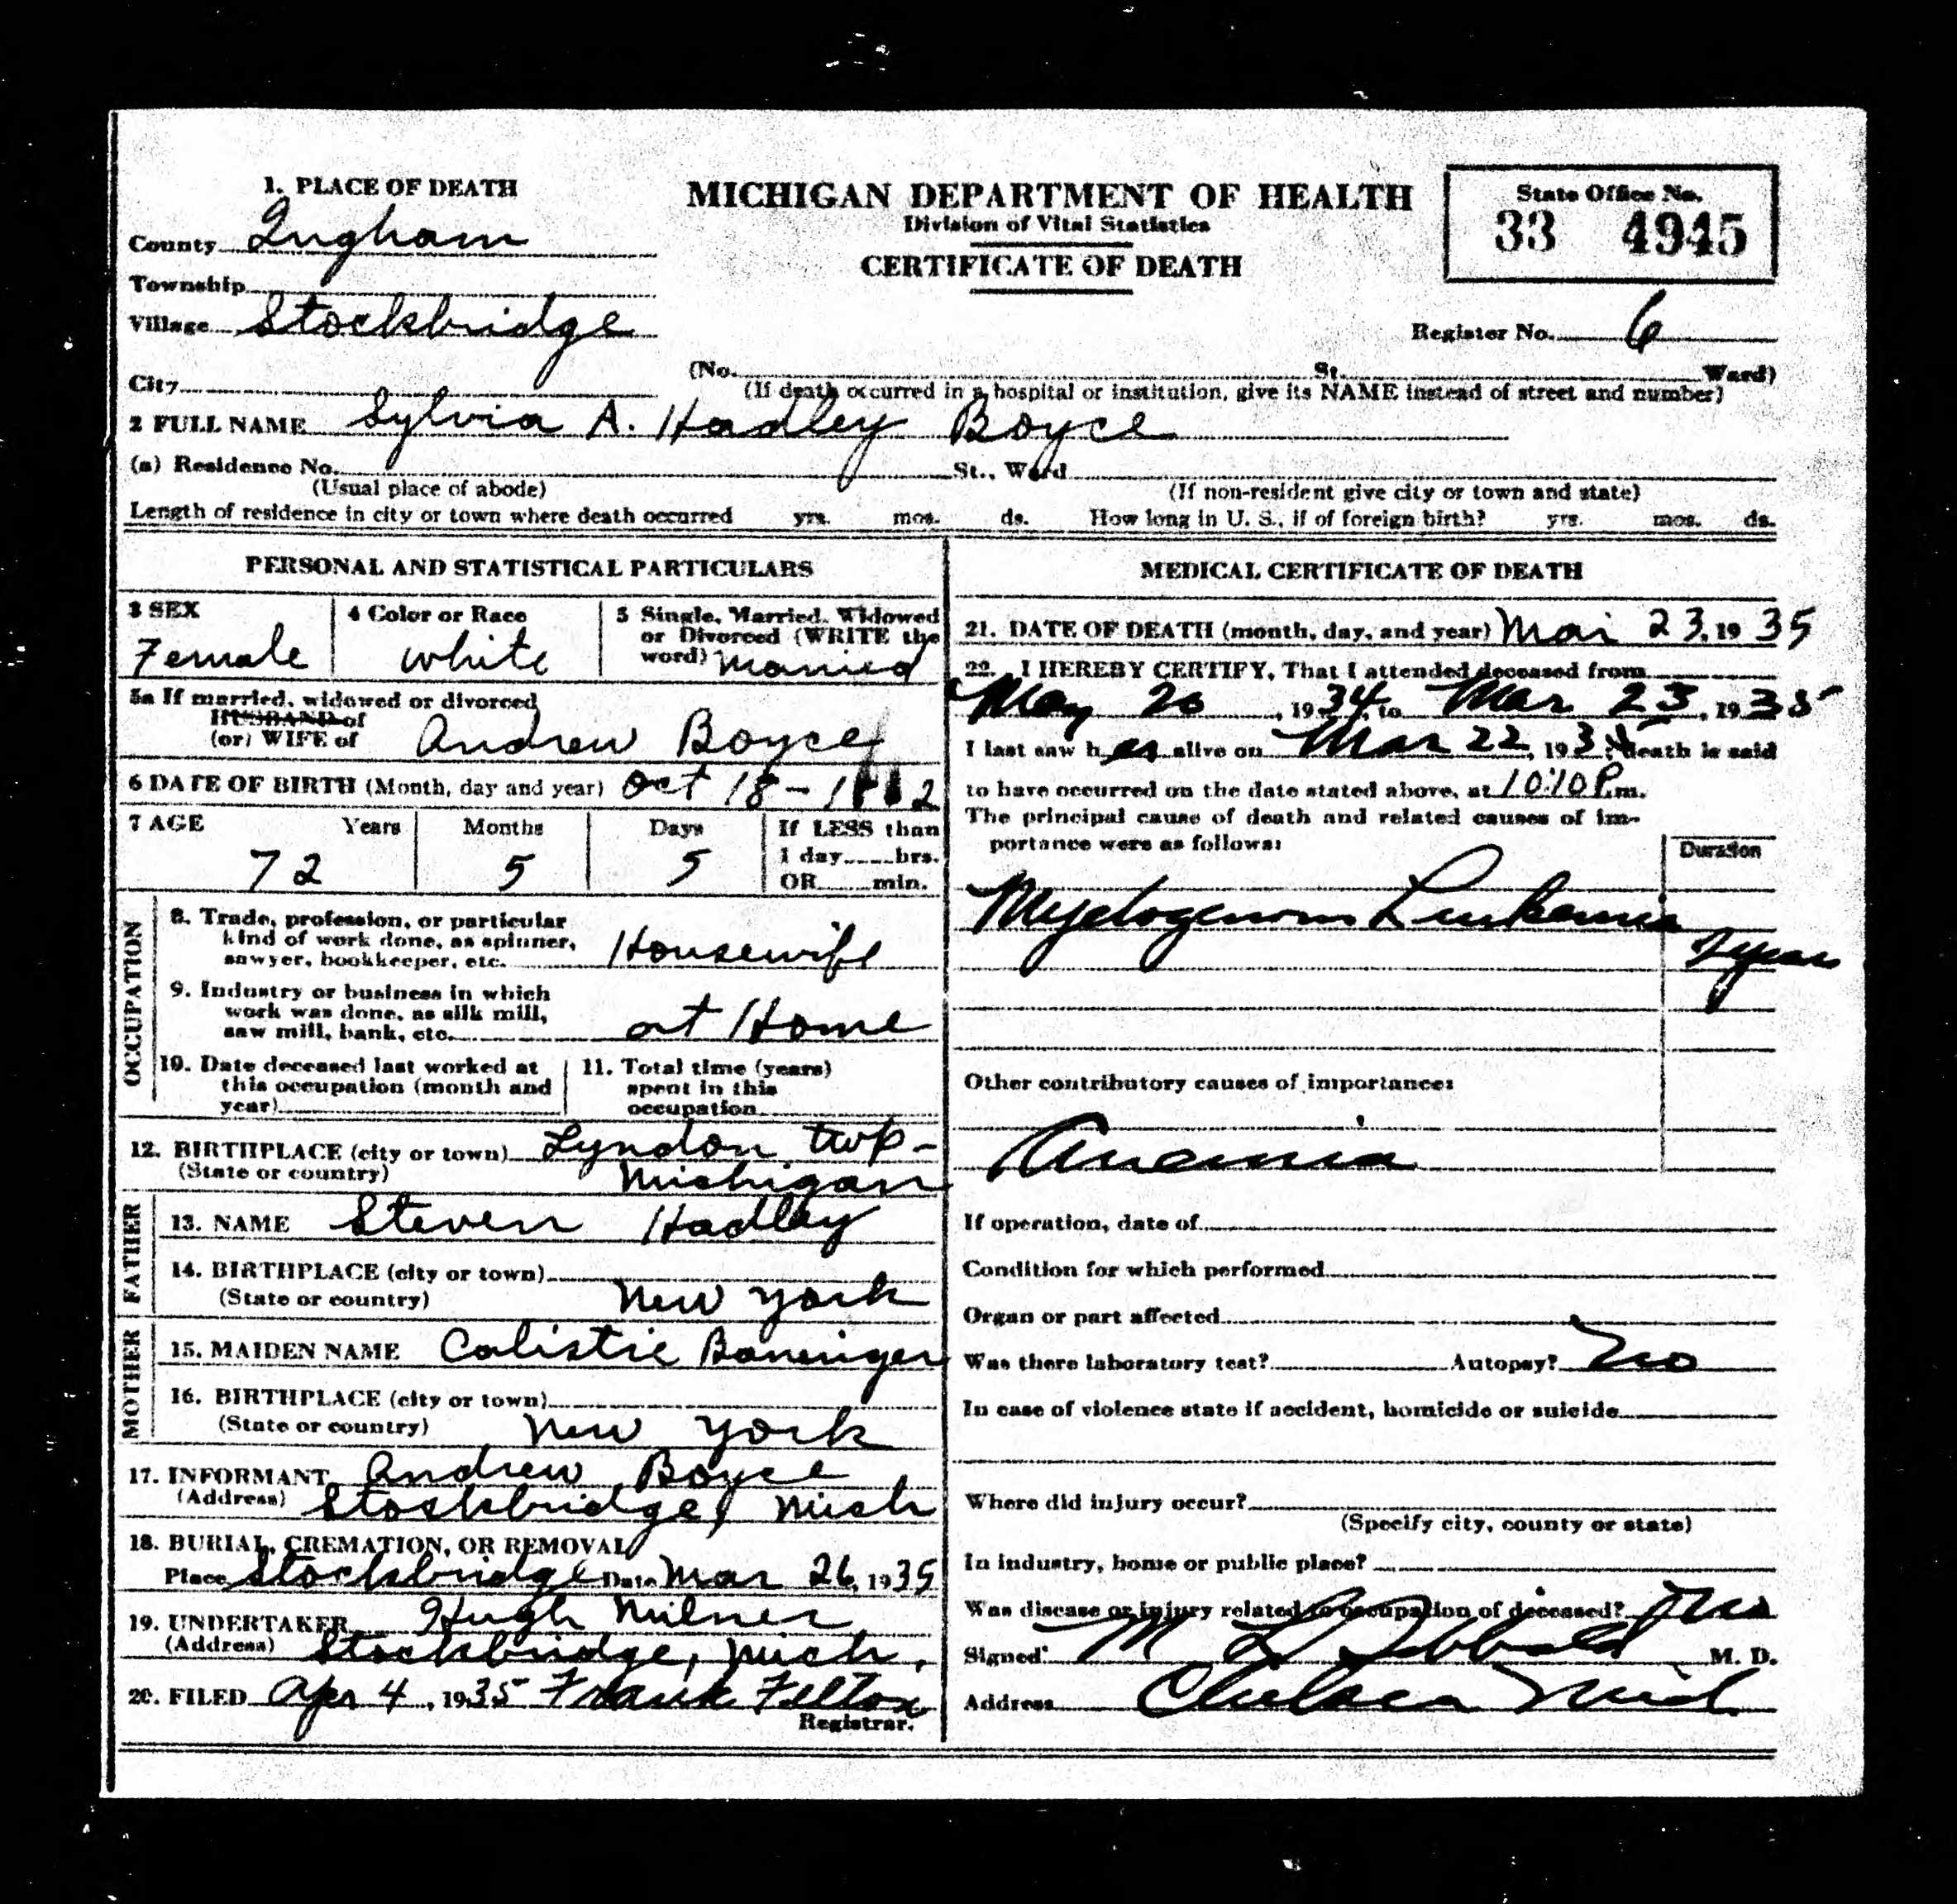 1. PLACE OF DEATH
County Ingham
Township
Village Stockbridge
City
MICHIGAN DEPARTMENT OF HEALTH
Division of Vital Statistics
CERTIFICATE OF DEATH
State Office No.
33 4945
Register No. 6
(No. St. Ward)
(If death occurred in a hospital or institution, give its NAME instead of street and number)
2 FULL NAME Sylvia A. Hadley Boyce
(a) Residence No. St., Ward
(Usual place of abode) (If non-resident give city or town and state)
Length of residence in city or town where death occurred yrs. mos. ds. How long in U. S., if of foreign birth? yrs. mos. ds.
PERSONAL AND STATISTICAL PARTICULARS
3 SEX
Female
4 Color or Race
White
5 Single, Married, Widowed
or Divorced (WRITE the
word) Married
5a If married, widowed or divorced
HUSBAND of
(or) WIFE of Andrew Boyce
6 DATE OF BIRTH (Month, day and year) Oct 18-1862
7 AGE Years Months Days If LESS than
1 day hrs.
72 5 5 OR min.
OCCUPATION
8. Trade, profession, or particular
kind of work done, as spinner,
sawyer, bookkeeper, etc. Housewife
9. Industry or business in which
work was done, as silk mill,
saw mill, bank, etc. at Home
10. Date deceased last worked at
this occupation (month and
year)
11. Total time (years)
spent in this
occupation
12. BIRTHPLACE (city or town) Lyndon twp-
(State or country) Michigan
FATHER
13. NAME Steven Hadley
14. BIRTHPLACE (city or town)
(State or country) New York
MOTHER
15. MAIDEN NAME Calistie
16. BIRTHPLACE (city or town)
(State or country) New York
17. INFORMANT Andrew Boyce
(Address) Stockbridge, Mich
18. BURIAL, CREMATION, OR REMOVAL
Place Stockbridge Date Mar 26, 1935
19. UNDERTAKER Hugh Milner
(Address) Stockbridge, Mich.
20. FILED Apr 4, 1935 Frank Felton
Registrar.
MEDICAL CERTIFICATE OF DEATH
21. DATE OF DEATH (month, day, and year) Mar 23, 1935
22. I HEREBY CERTIFY, That I attended deceased from
May 20, 1934, to Mar 23, 1935
I last saw her alive on Mar 22, 1935; death is said
to have occurred on the date stated above, at 10:10 P.m.
The principal cause of death and related causes of im-
portance were as follows:
Duration
Myelogenous Leukemia
Other contributory causes of importance:
Anemia
If operation, date of
Condition for which performed
Organ or part affected
Was there laboratory test? Autopsy? No
In case of violence state if accident, homicide or suicide
Where did injury occur?
(Specify city, county or state)
In industry, home or public place?
Was disease or injury related to occupation of deceased? No
Signed M. D.
Address Chelsea Mich.